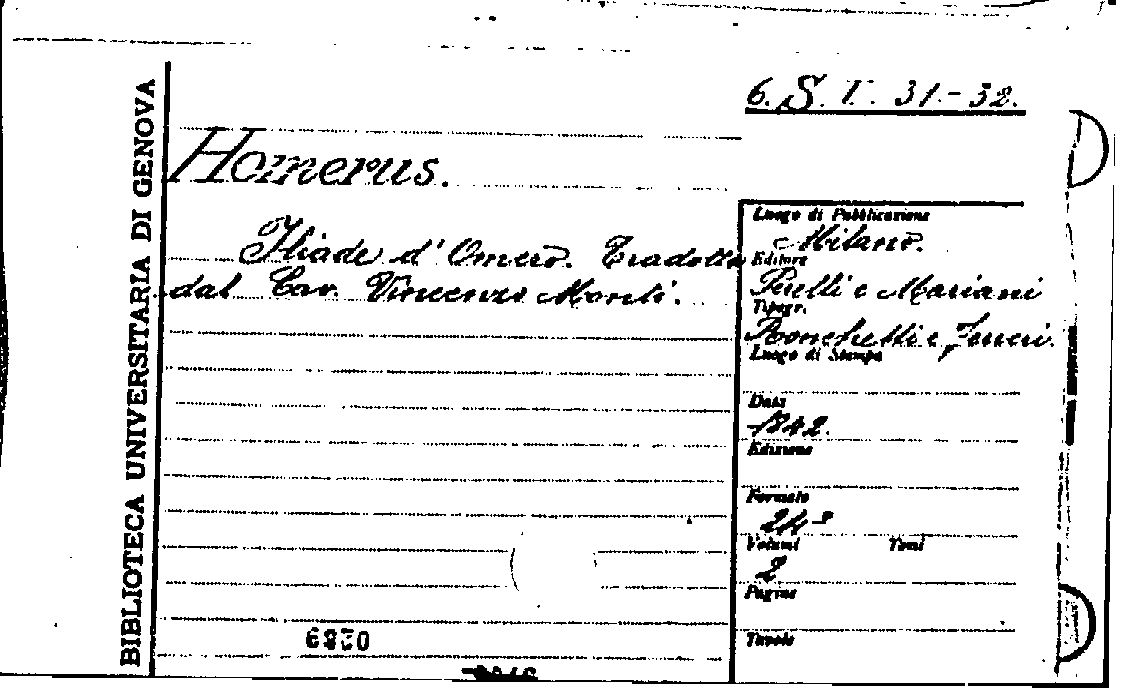 BIBLIOTECA UNIVERSITARIA DI GENOVA
6. S. I. 31.-32.
Homerus.
Iliade d'Omero. Tradotta
dal Cav. Vincenzo Monti.
Luogo di Pubblicazione
Milano.
Editore
Pirelli e Mariani
Tipogr.
Ronchetti e
Luogo di Stampa
Data
1842.
Edizione
Formato
24°
Volumi Tomi
2
Pagine
Tavole